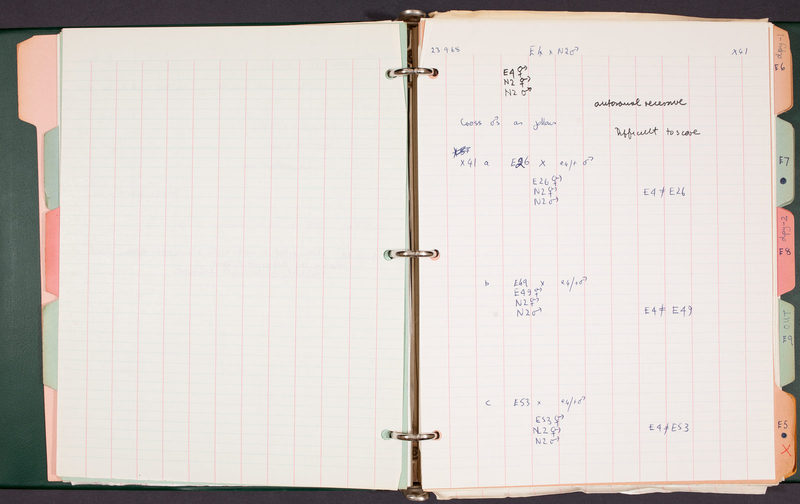 23.9.68 E4 x N2♂ X41
E4 ⚥
N2 ⚥
N2 ♂
autosomal recessive
Difficult to score
Cross ♂s as follows
X41 a E26 x e4/+ ♂
E26 ⚥
N2 ⚥
N2 ♂
E4 ≠ E26
b E49 x e4/+♂
E49 ⚥
N2 ⚥
N2 ♂
E4 ≠ E49
c E53 x e4/+♂
E53 ⚥
N2 ⚥
N2 ♂
E4 ≠ E53
dpy-1
E6
E7
dpy-2
E8
OUT
E9
E5
X